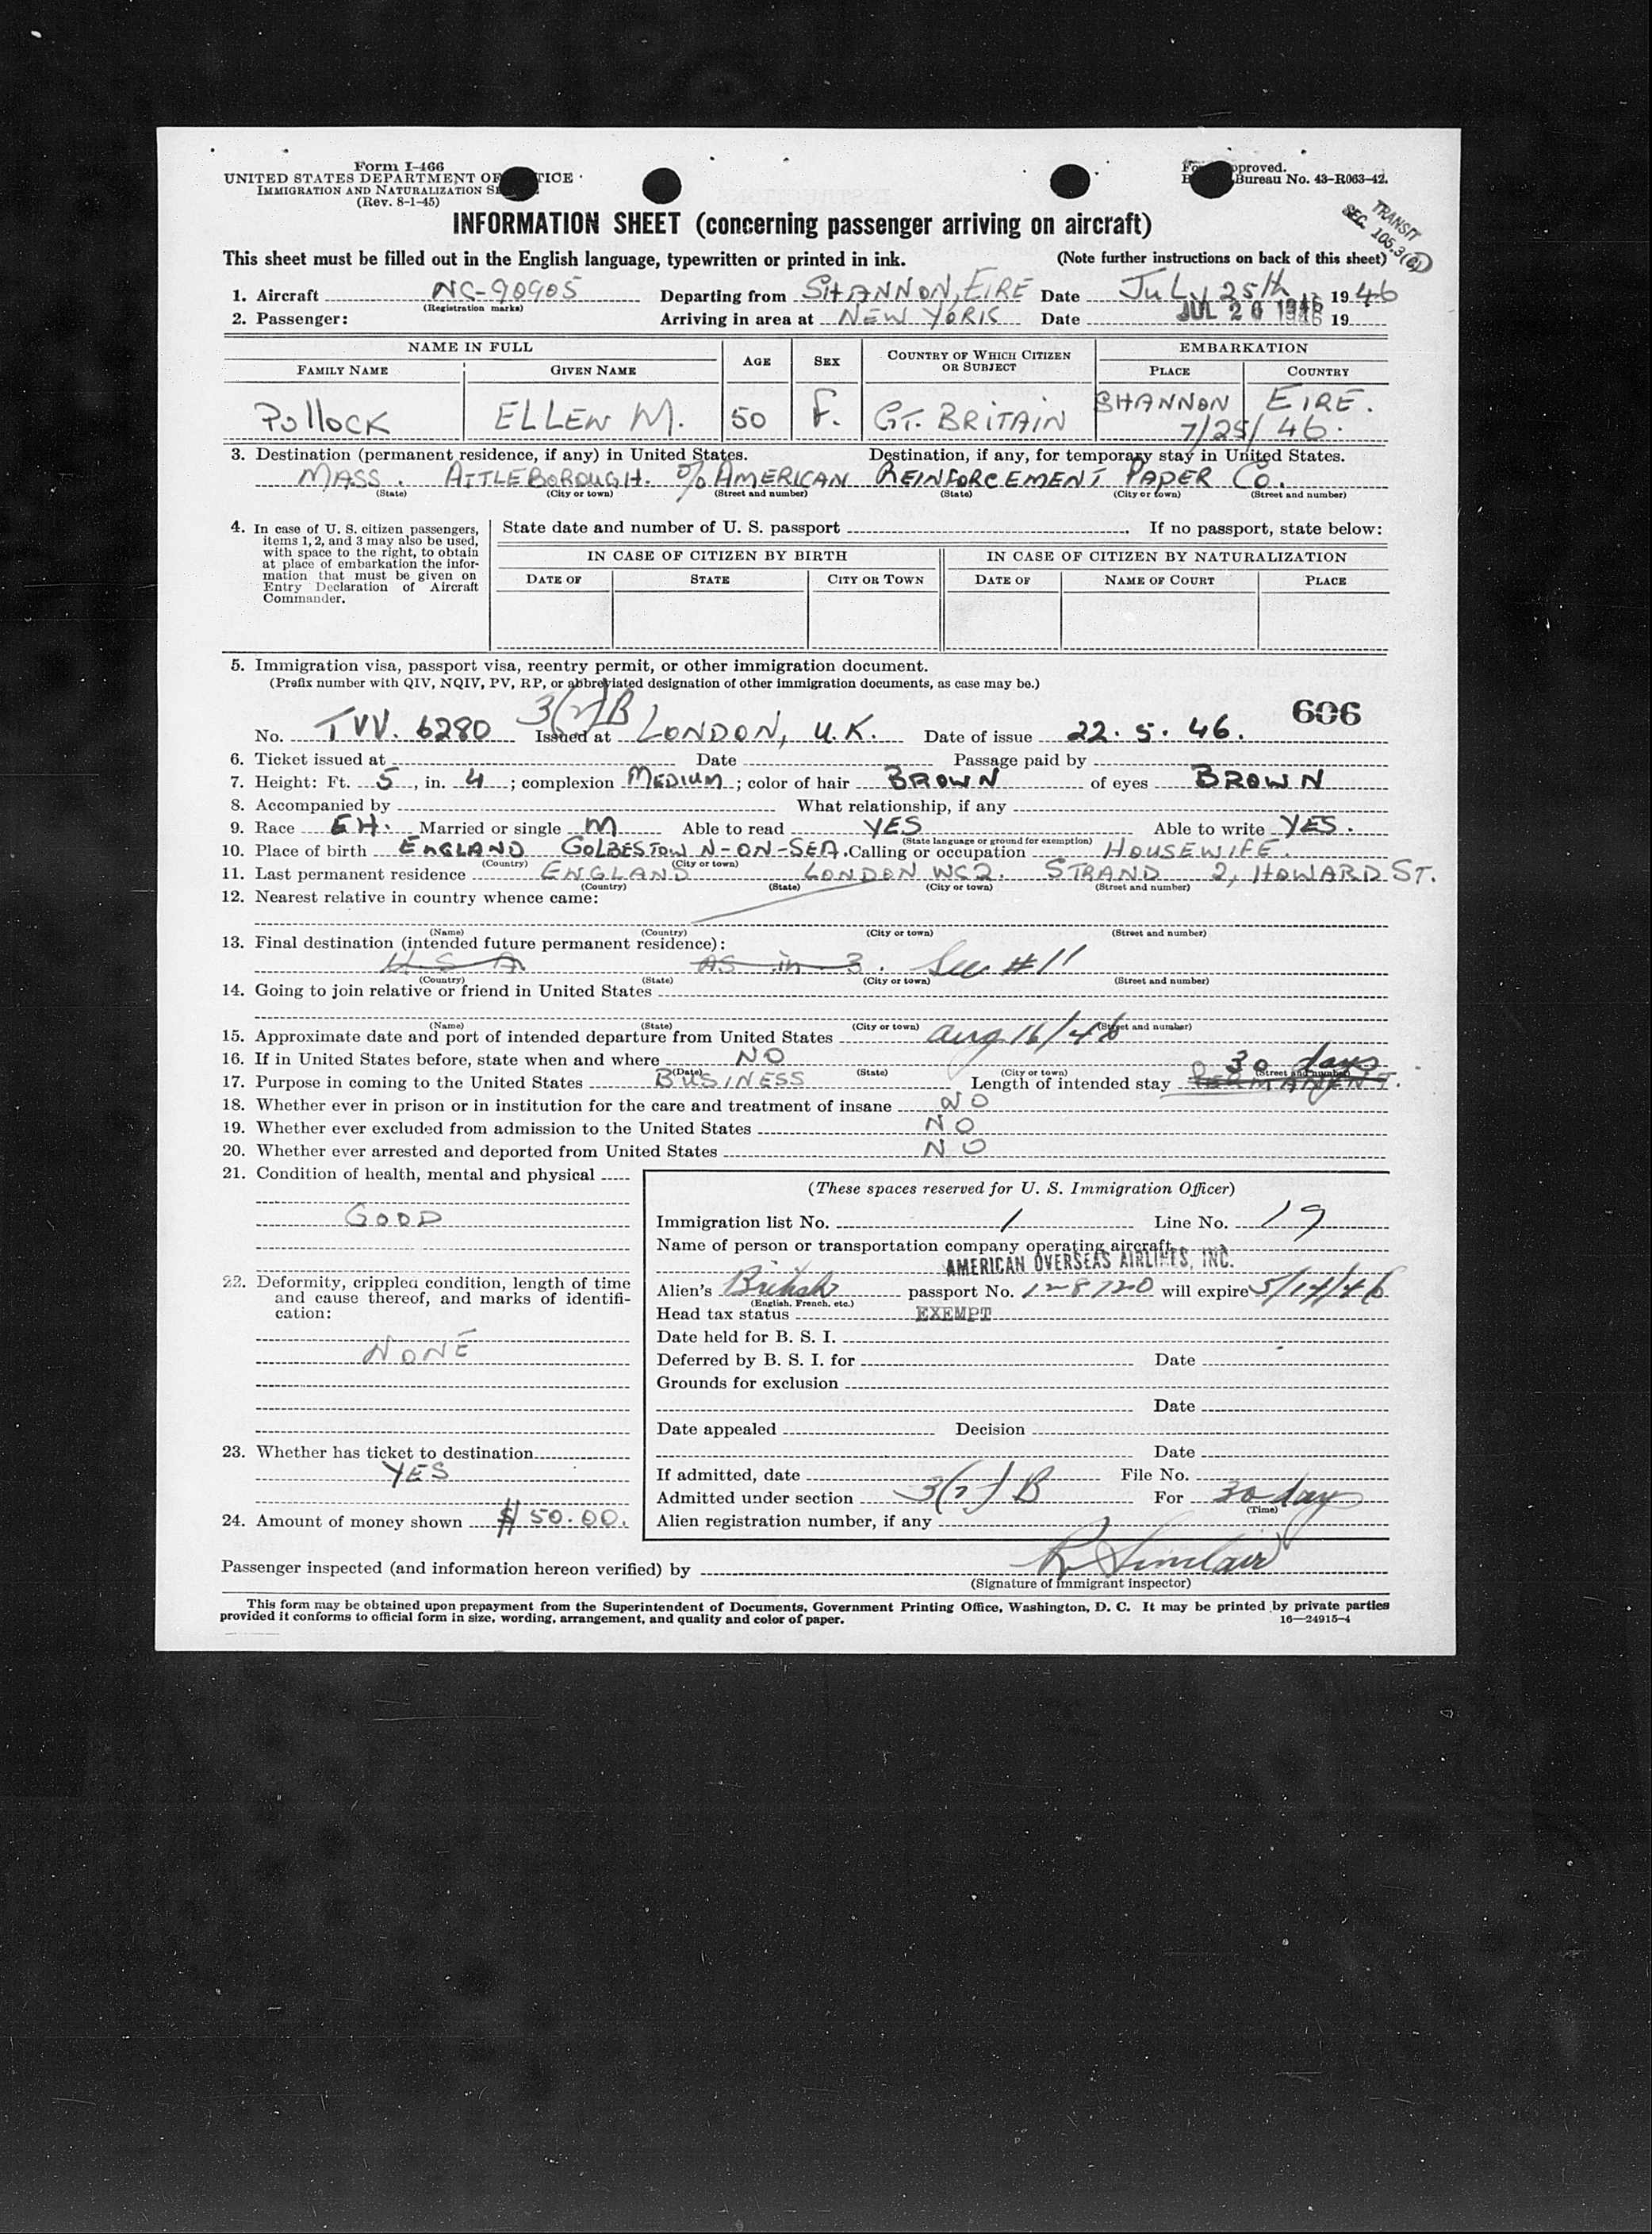 Form I-466
UNITED STATES DEPARTMENT OF TICE
IMMIGRATION AND NATURALIZATION SE
(Rev. 8-1-45)
pproved.
Bureau No. 43-R063-42.
INFORMATION SHEET (concerning passenger arriving on aircraft)
TRANSIT
SEC. 105.3(c)
This sheet must be filled out in the English language, typewritten or printed in ink. (Note further instructions on back of this sheet)
1. Aircraft NC-90905 Departing from SHANNON, EIRE Date July 25th 1946
(Registration marks)
2. Passenger: Arriving in area at NEW YORK Date JUL 26 1946 19
NAME IN FULL AGE SEX COUNTRY OF WHICH CITIZEN OR SUBJECT EMBARKATION
FAMILY NAME GIVEN NAME PLACE COUNTRY
Pollock ELLEN M. 50 F. GT. BRITAIN SHANNON EIRE.
7/25/46.
3. Destination (permanent residence, if any) in United States. Destination, if any, for temporary stay in United States.
MASS. ATTLEBOROUGH. c/o AMERICAN REINFORCEMENT PAPER Co.
(State) (City or town) (Street and number) (State) (City or town) (Street and number)
4. In case of U. S. citizen passengers, items 1, 2, and 3 may also be used, with space to the right, to obtain at place of embarkation the information that must be given on Entry Declaration of Aircraft Commander.
State date and number of U. S. passport . If no passport, state below:
IN CASE OF CITIZEN BY BIRTH IN CASE OF CITIZEN BY NATURALIZATION
DATE OF STATE CITY OR TOWN DATE OF NAME OF COURT PLACE
5. Immigration visa, passport visa, reentry permit, or other immigration document.
(Prefix number with QIV, NQIV, PV, RP, or abbreviated designation of other immigration documents, as case may be.)
3(2)B 606
No. TVV. 6280 Issued at LONDON, U.K. Date of issue 22. 5. 46.
6. Ticket issued at Date Passage paid by
7. Height: Ft. 5, in. 4; complexion MEDIUM; color of hair BROWN of eyes BROWN
8. Accompanied by What relationship, if any
9. Race EH. Married or single M Able to read YES Able to write YES.
(State language or ground for exemption)
10. Place of birth ENGLAND GOLBESTOWN-ON-SEA. Calling or occupation HOUSEWIFE.
(Country) (City or town)
11. Last permanent residence ENGLAND LONDON WC2. STRAND 2, HOWARD ST.
(Country) (State) (City or town) (Street and number)
12. Nearest relative in country whence came:
(Name) (Country) (City or town) (Street and number)
13. Final destination (intended future permanent residence):
U S A AS in 3. See #11
(Country) (State) (City or town) (Street and number)
14. Going to join relative or friend in United States
(Name) (State) (City or town) (Street and number)
15. Approximate date and port of intended departure from United States Aug 16/46
16. If in United States before, state when and where NO 30 days
(Date) (State) (City or town) (Street and number)
17. Purpose in coming to the United States BUSINESS Length of intended stay PERMANENT.
18. Whether ever in prison or in institution for the care and treatment of insane NO
19. Whether ever excluded from admission to the United States NO
20. Whether ever arrested and deported from United States NO
21. Condition of health, mental and physical
GOOD
22. Deformity, crippled condition, length of time and cause thereof, and marks of identification:
NONE
23. Whether has ticket to destination
YES
24. Amount of money shown $50.00.
(These spaces reserved for U. S. Immigration Officer)
Immigration list No. 1 Line No. 19
Name of person or transportation company operating aircraft
AMERICAN OVERSEAS AIRLINES, INC.
Alien's British passport No. 128720 will expire 5/14/46
(English, French, etc.)
Head tax status EXEMPT
Date held for B. S. I.
Deferred by B. S. I. for Date
Grounds for exclusion
Date
Date appealed Decision
Date
If admitted, date File No.
Admitted under section 3(2) B For 30 day
(Time)
Alien registration number, if any
Passenger inspected (and information hereon verified) by R Sinclair
(Signature of immigrant inspector)
This form may be obtained upon prepayment from the Superintendent of Documents, Government Printing Office, Washington, D. C. It may be printed by private parties
provided it conforms to official form in size, wording, arrangement, and quality and color of paper. 16—24915-4